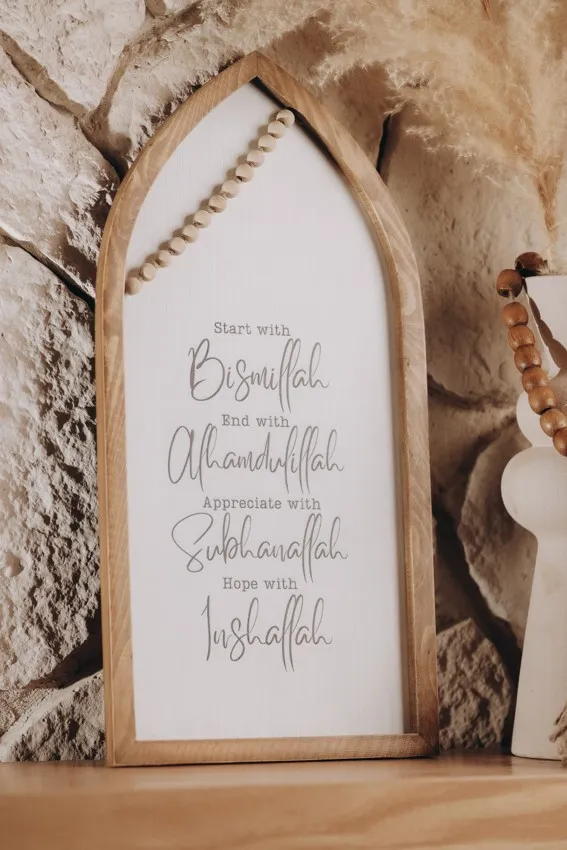 Start with
Bismillah
End with
Alhamdulillah
Appreciate with
Subhanallah
Hope with
Inshallah